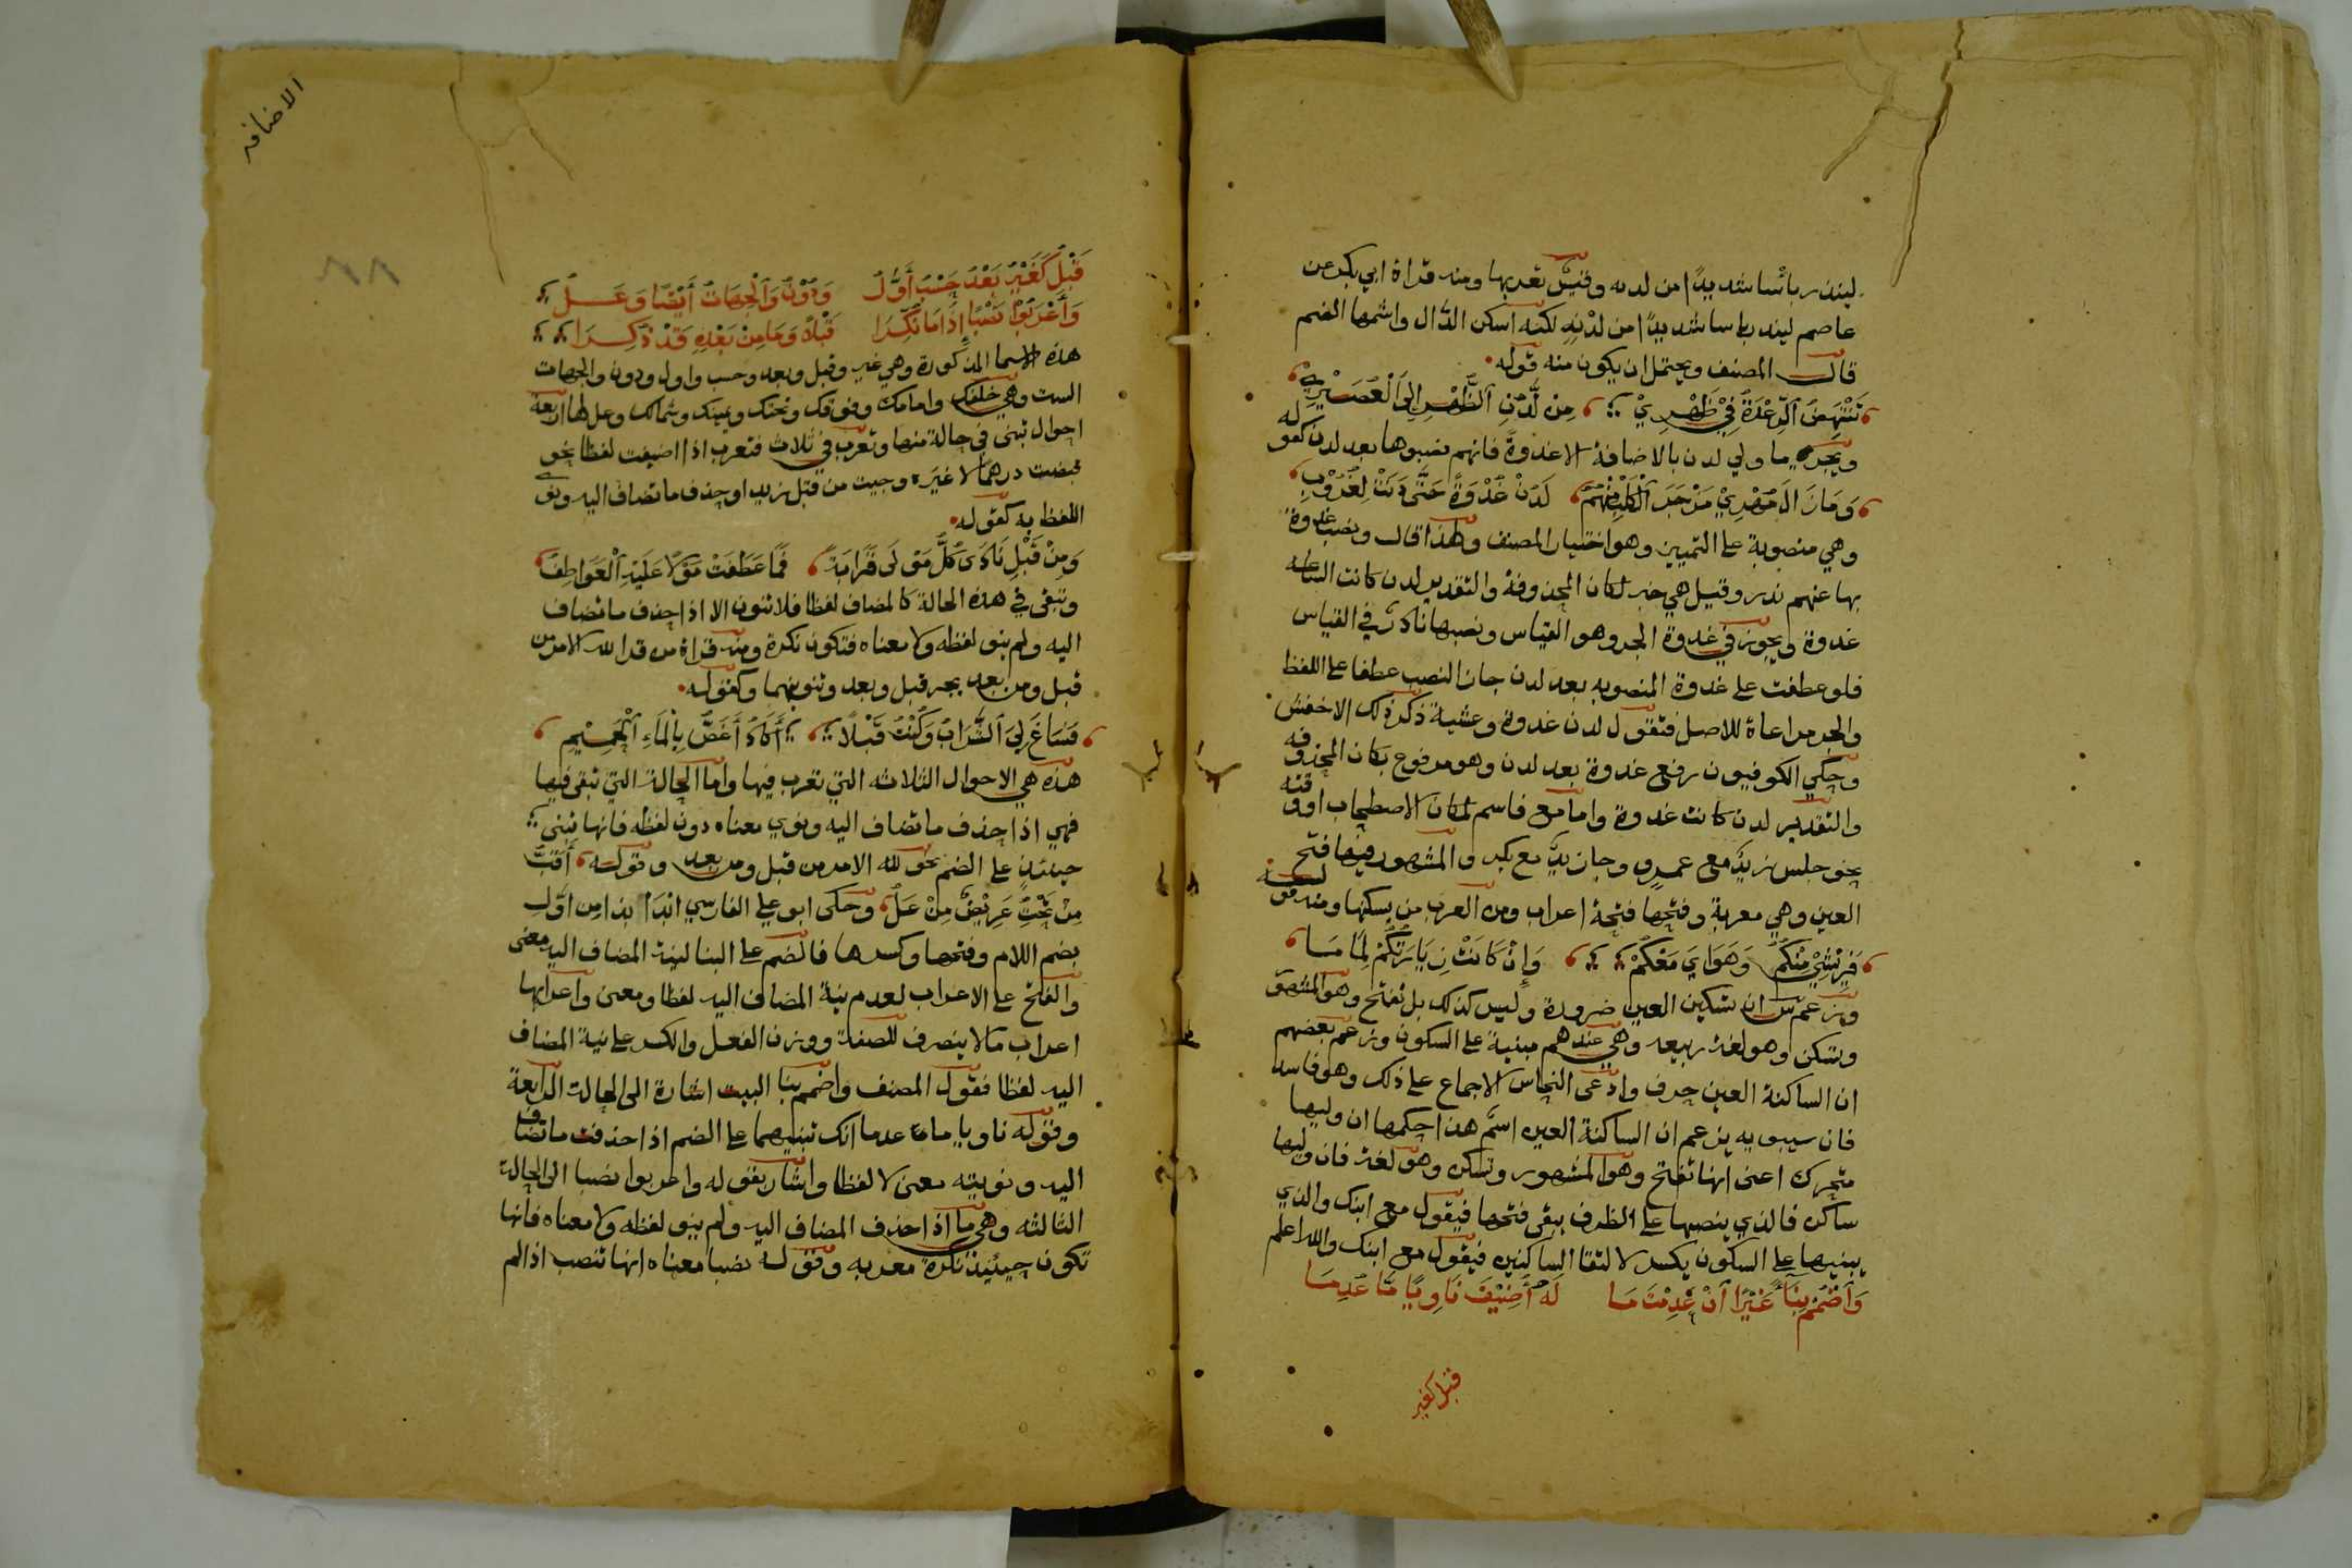 لينذر باسا شديدا من لدنه وقيس تعربها ومنه قراة ابي بكر عن
عاصم لينذر باسا شديدا من لدنه لكنه اسكن الدال واشمها الضم
قال المصنف ويحتمل ان يكون منه قوله
تَنْتَهِضُ الرِّعْدَةُ فِي ظُهَيْرِي مِن لَّدُنِ الظُّهْرِ اِلَى الْعُصَيْرِ
ويجر ما ولي لدن بالاضافة الا غدوة فانهم نصبوها بعد لدن كقوله
وَمَا زَالَ مُهْرِي مَزْجَرَ الْكَلْبِ مِنْهُمُ لَدُنْ غُدْوَةً حَتَّى دَنَتْ لِغُرُوبِ
وهي منصوبة على التمييز وهو اختيار المصنف ولهذا قال ونصب غدوة
بها عنهم ندر وقيل هي خبر لكان المحذوفة والتقدير لدن كانت الساعة
غدوة ويجوز في غدوة الجر وهو القياس ونصبها نادر في القياس
فلو عطفت على غدوة المنصوبه بعد لدن جاز النصب عطفا على اللفظ
والجر مراعاة للاصل فتقول لدن غدوة وعشية ذكر ذلك الاخفش
وحكي الكوفيون رفع غدوة بعد لدن وهو مرفوع بكان المحذوفه
والتقدير لدن كانت غدوة واما مع فاسم لمكان الاصطحاب او وقته
نحو جلس زيد مع عمرو وجا زيد مع بكر والمشهور فيها فتح
العين وهي معربة وفتحها فتحة اعراب ومن العرب من يسكنها ومنه قوله
فَرِيشِي مِنْكُمُ وَهَوَايَ مَعْكُمْ وَإِنْ كَانَتْ زِيَارَتُكُمْ لِمَامَا
وزعم س ان تسكين العين ضرورة وليس كذلك بل تفتح وهو المشهور
وتسكن وهو لغة ربيعه وهي عندهم مبنية على السكون وزعم بعضهم
ان الساكنة العين حرف وادعى النحاس الاجماع على ذلك وهو فاسد
فان سيبويه يزعم ان الساكنة العين اسم هذا حكمها ان وليها
متحرك اعني انها تفتح وهو المشهور وتسكن وهو لغة فان وليها
ساكن فالذي ينصبها على الظرف يبقى فتحها فيقول مع ابنك والذي
يبنيها على السكون يكسر لالتقا الساكنين فيقول مع ابنك والله اعلم
وَاضْمُمْ بِنَاءً غَيْرًا اَنْ عَدِمْتَ مَا لَهُ أُضِيفَ نَاوِيًا مَا عُدِمَا
قبل كغير
الاضافه
٨٨
قَبْلُ كَغَيْرُ بَعْدُ حَسْبُ أَوَّلُ وَدُوْنُ وَالْجِهَاتُ أَيْضًا وَعَلُ
وَأَعْرَبُوْا نَصْبًا إِذَا مَا نُكِّرَا قَبْلًا وَمَا مِنْ بَعْدِهِ قَدْ ذُكِرَا
هذه الاسما المذكورة وهي غير وقبل وبعد وحسب واول ودون والجهات
الست وهي خلفك وامامك وفوقك وتحتك ويمينك وشمالك وعل لها اربعة
احوال تبنى في حالة منها وتعرب في ثلاث فتعرب اذا اضيفت لفظا نحو
قبضت درهما لا غيره وجيت من قبل زيد او حذف ما تضاف اليه ونوى
اللفظ به كقوله
وَمِنْ قَبْلِ نَادَى كُلُّ مَوْلَى قَرَابَةً فَمَا عَطَفَتْ مَوْلًا عَلَيْهِ الْعَوَاطِفُ
وتبقى في هذه الحالة كالمضاف لفظا فلا تنون الا اذا حذف ما تضاف
اليه ولم ينو لفظه ولا معناه فتكون نكرة ومنه قراة من قرا لله الامر من
قبل ومن بعد بجر قبل وبعد وتنوينهما وكقوله
فَسَاغَ لِيَ الشَّرَابُ وَكُنْتُ قَبْلًا أَكَادُ أَغَصُّ بِالْمَاءِ الْحَمِيْمِ
هذه هي الاحوال الثلاثه التي تعرب فيها واما الحالة التي تبقى فيها
فهي اذا حذف ما تضاف اليه ونوي معناه دون لفظه فانها تبنى
حينئذ على الضم نحو لله الامر من قبل ومن بعد وقوله أَقَبُّ
مِنْ تَحْتُ عَرِيْضٌ مِنْ عَلُ وحكى ابو علي الفارسي ابدأ بذا من اوّل
بضم اللام وفتحها وكسرها فالضم على البنا لنية المضاف اليه معنى
والفتح على الاعراب لعدم نية المضاف اليه لفظا ومعنى واعرابها
اعراب ما لا ينصرف للصفة ووزن الفعل والكسر على نية المضاف
اليه لفظا فقول المصنف واضمم بنا البيت اشارة الى الحالة الرابعة
وقوله ناويا ما عدما انك تبنيهما على الضم اذا حذفت ما تضاف
اليه ونويته معنى لا لفظا واشار بقوله واعربوا نصبا الى الحالة
الثالثه وهي ما اذا حذف المضاف اليه ولم ينو لفظه ولا معناه فانها
تكون حينئذ نكرة معربه وقوله نصبا معناه انها تنصب اذا لم